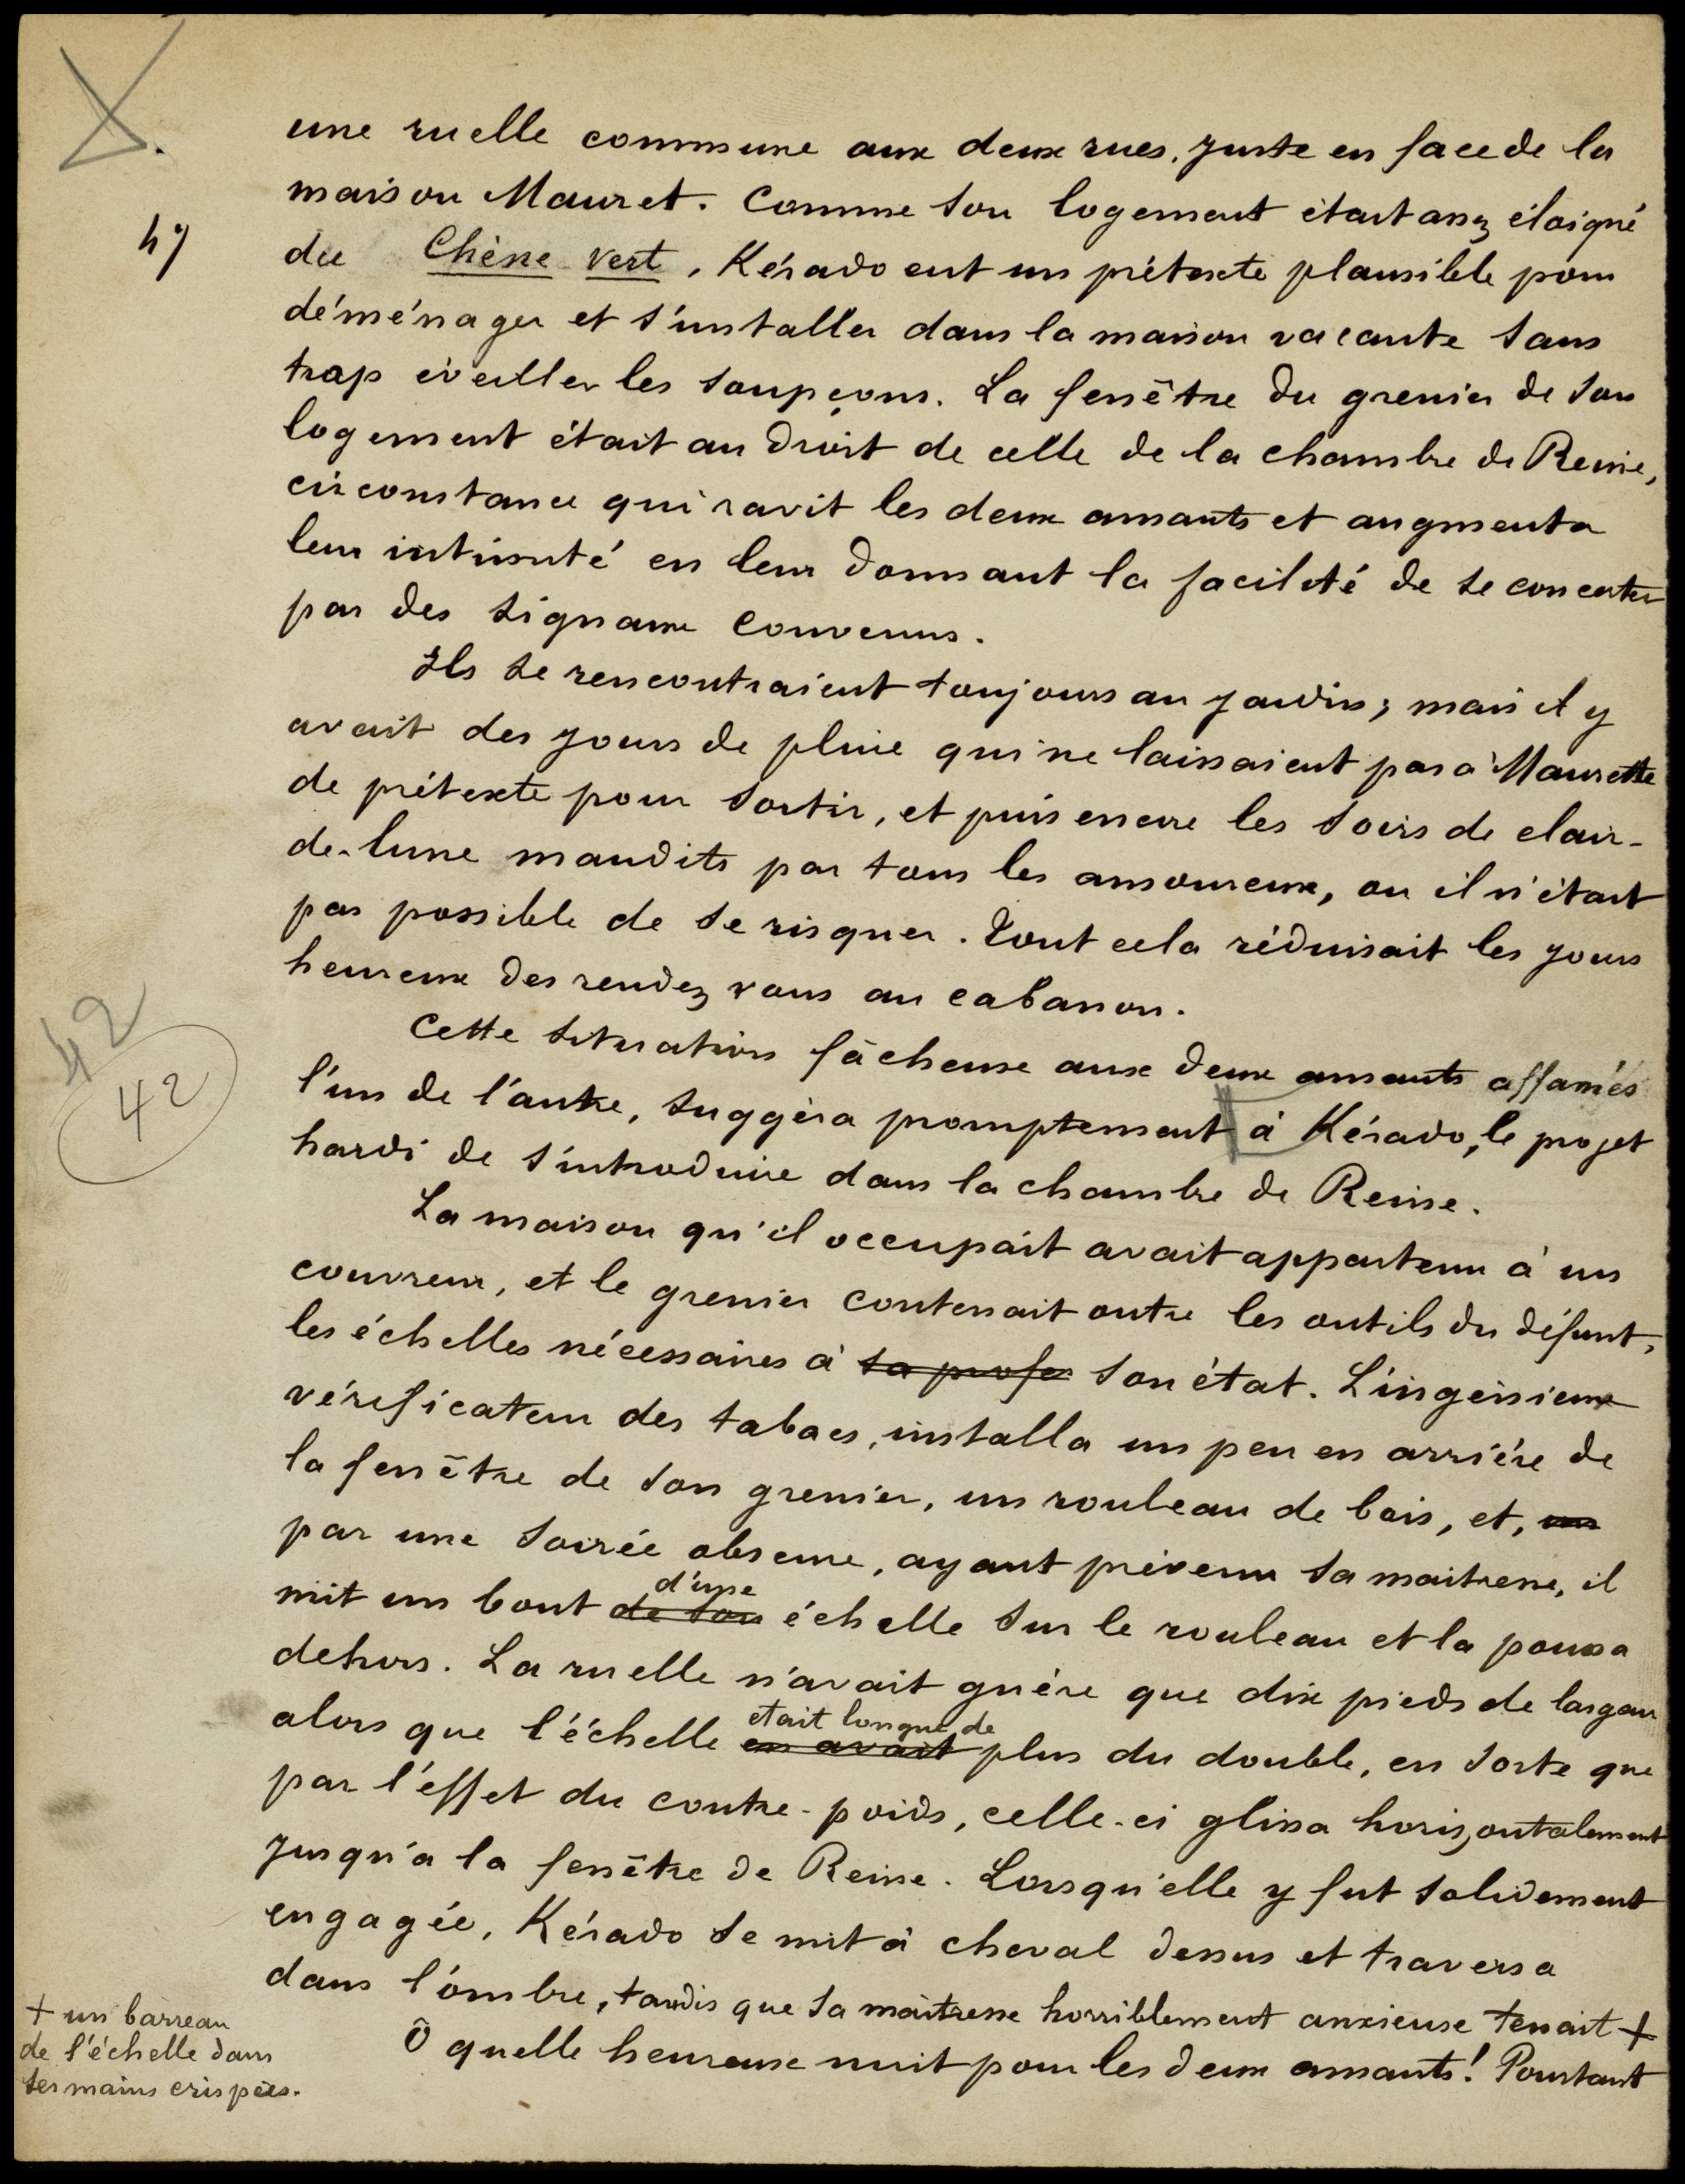 une ruelle commune aux deux rues, juste en face de la
maison Mauret. Comme son logement était assez éloigné
47
du Chêne Vert, Kérado eut un prétexte plausible pour
déménager et s'installer dans la maison vacante sans
trop éveiller les soupçons. La fenêtre du grenier de son
logement était au droit de celle de la chambre de Reine,
circonstance qui ravit les deux amants et augmenta
leur intimité en leur donnant la facilité de se concerter
par des signaux convenus.
Ils se rencontraient toujours au jardin; mais il y
avait des jours de pluie qui ne laissaient pas à Maurette
de prétexte pour sortir, et puis encore les soirs de clair-
de-lune maudits par tous les amoureux, où il n'était
pas possible de se risquer. Tout cela réduisait les jours
heureux des rendez vous au cabanon.
42
42
Cette situation fâcheuse aux deux amants affamés
l'un de l'autre, suggéra promptement à Kérado, le projet
hardi de s'introduire dans la chambre de Reine.
La maison qu'il occupait avait appartenu à un
couvreur, et le grenier contenait outre les outils du défunt,
les échelles nécessaires à sa profes son état. L'ingénieux
vérificateur des tabacs, installa un peu en arrière de
la fenêtre de son grenier, un rouleau de bois, et, un
par une soirée obscure, ayant prévenu sa maitresse, il
d'une
mit un bout de son échelle sur le rouleau et la poussa
dehors. La ruelle n'avait guère que dix pieds de largeur
était longue de
alors que l'échelle en avait plus du double, en sorte que
par l'effet du contre-poids, celle-ci glissa horizontalement
jusqu'à la fenêtre de Reine. Lorsqu'elle y fut solidement
engagée, Kérado se mit à cheval dessus et traversa
dans l'ombre, tandis que sa maitresse horriblement anxieuse tenait +
+ un barreau
de l'échelle dans
ses mains crispées.
Ô quelle heureuse nuit pour les deux amants! Pourtant